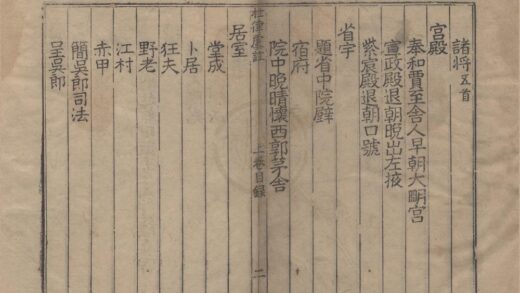 諸將五首
宮殿
奉和賈至舍人早朝大明宮
宣政殿退朝晩出左掖
紫宸殿退朝口號
省宇
題省中院壁
宿府
院中晩晴懷西郭茅舍
杜律虞註 上卷目錄 二
居室
堂成
卜居
狂夫
野老
江村
赤甲
簡吳郎司法
呈吳郎